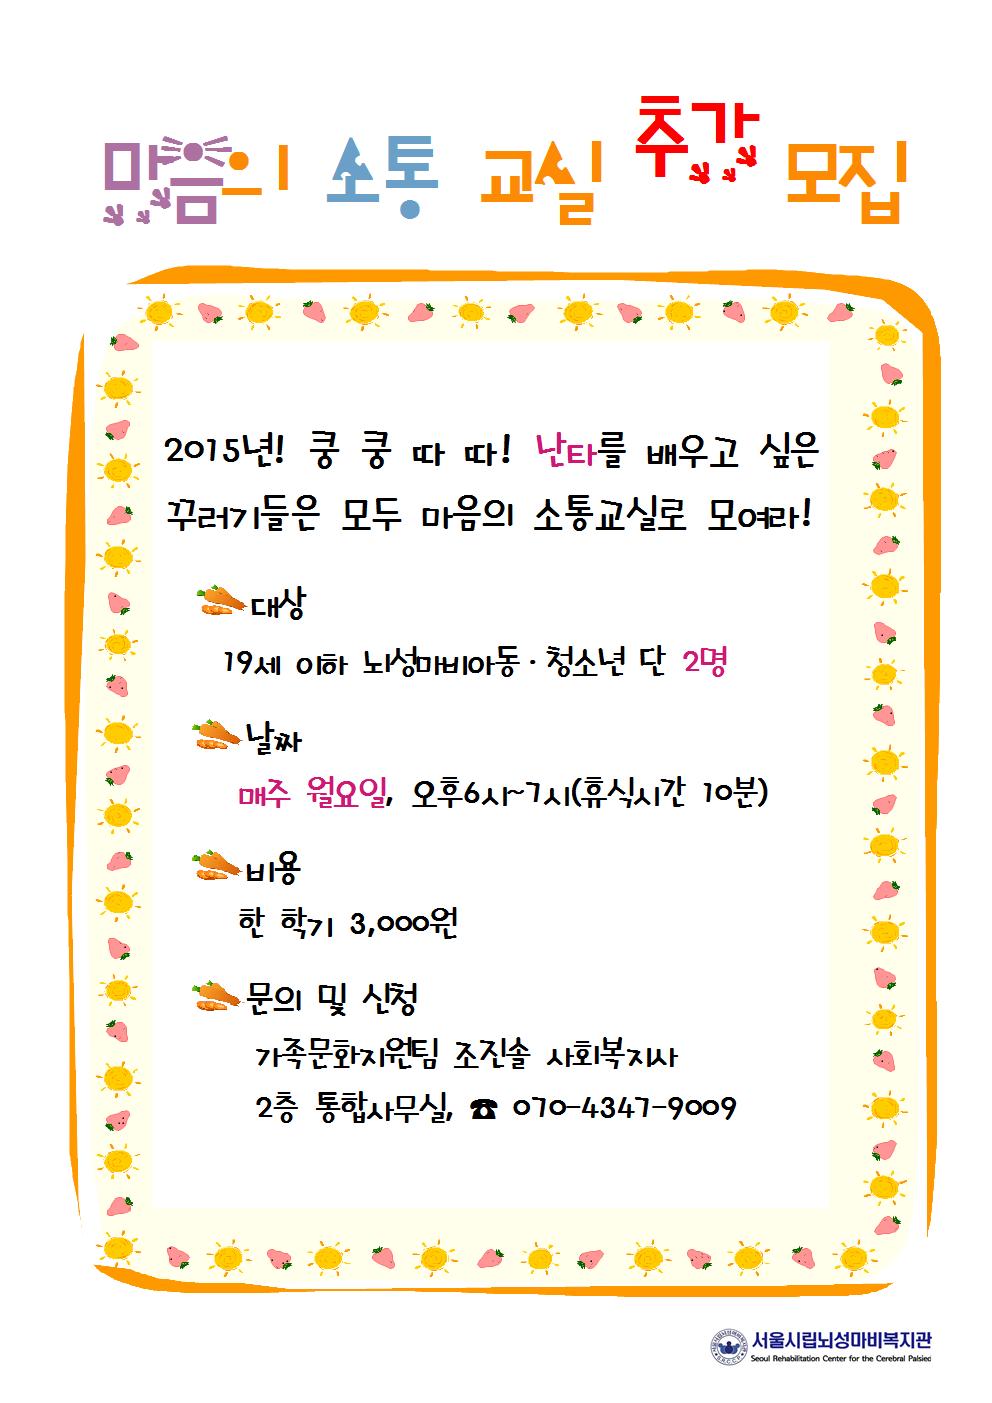 마음의 소통 교실 추가 모집
2015년! 쿵 쿵 따 따! 난타를 배우고 싶은
꾸러기들은 모두 마음의 소통교실로 모여라!
대상
19세 이하 뇌성마비아동·청소년 단 2명
날짜
매주 월요일, 오후6시~7시(휴식시간 10분)
비용
한 학기 3,000원
문의 및 신청
가족문화지원팀 조진솔 사회복지사
2층 통합사무실, ☎ 070-4347-9009
서울시립뇌성마비복지관
Seoul Rehabilitation Center for the Cerebral Palsied